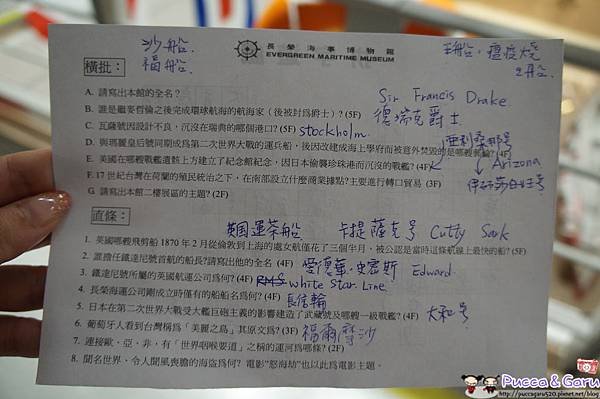 沙船.
福船.
長榮海事博物館
EVERGREEN MARITIME MUSEUM
王船.瘟疫燒
王船.
橫批:
A. 請寫出本館的全名?
Sir Francis Drake
B. 誰是繼麥哲倫之後完成環球航海的航海家（後被封爲爵士）? (5F) 德瑞克爵士
C. 瓦薩號因設計不良，沉沒在瑞典的哪個港口? (5F) stockholm.
亞利桑那號
D. 與瑪麗皇后號同期成爲第二次世界大戰的運兵船，後因改建成海上學府而被意外焚毀的是哪艘郵輪? (4F)
E. 美國在哪艘戰艦遺骸上方建立了紀念館紀念，因日本偷襲珍珠港而沉沒的戰艦? (4F) Arizona
F. 17 世紀台灣在荷蘭的殖民統治之下，在南部設立什麼商業據點?主要進行轉口貿易 (3F) 伊莉莎白女王号
G. 請寫出本館二樓展區的主題? (2F)
直條:
英国運茶船 卡提薩克号 Cutty Sark
1. 英國哪艘飛剪船 1870 年 2 月從倫敦到上海的處女航僅花了三個半月，被公認是當時這條航線上最快的船? (5F)
2. 誰擔任鐵達尼號首航的船長?請寫出他的全名 (4F) 愛德華.史密斯 Edward
3. 鐵達尼號所屬的英國航運公司爲何? (4F) RMS white Star Line
4. 長榮海運公司剛成立時僅有的船舶名爲何? (4F) 長信輪
5. 日本在第二次世界大戰受大艦巨砲主義的影響建造了武藏號及哪艘一級戰艦? (4F) 大和号
6. 葡萄牙人看到台灣稱爲「美麗之島」其原文爲? (3F) 福爾摩沙
7. 連接歐、亞、非，有「世界咽喉要道」之稱的運河爲哪條? (2F)
8. 聞名世界、令人聞風喪膽的海盜爲何? 電影"怒海劫"也以此爲電影主題.
Pucca & Garu
http://puccagaru520.pixnet.net/blog